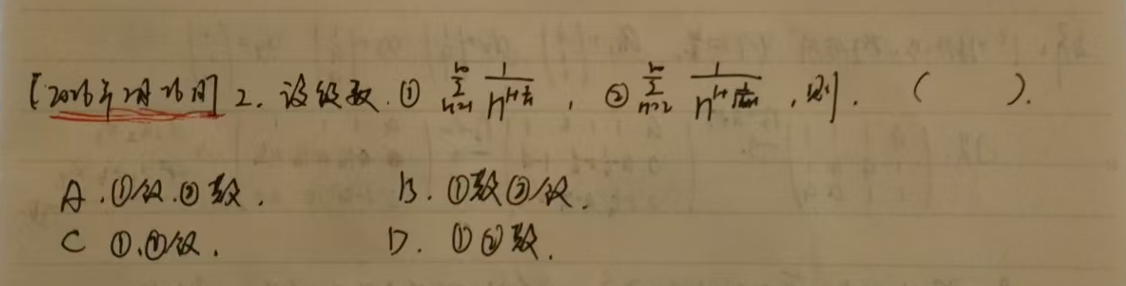 [2026年2月26日] 2. 设级数. ① $\sum_{n=1}^{\infty} \frac{1}{n^{1+\frac{1}{n}}}$ , ② $\sum_{n=2}^{\infty} \frac{1}{n^{1+\frac{1}{\sqrt{\ln n}}}}$ , 则. ( ).
A. ①收.②散. B. ①散②收.
C ①.②收. D. ①②散.